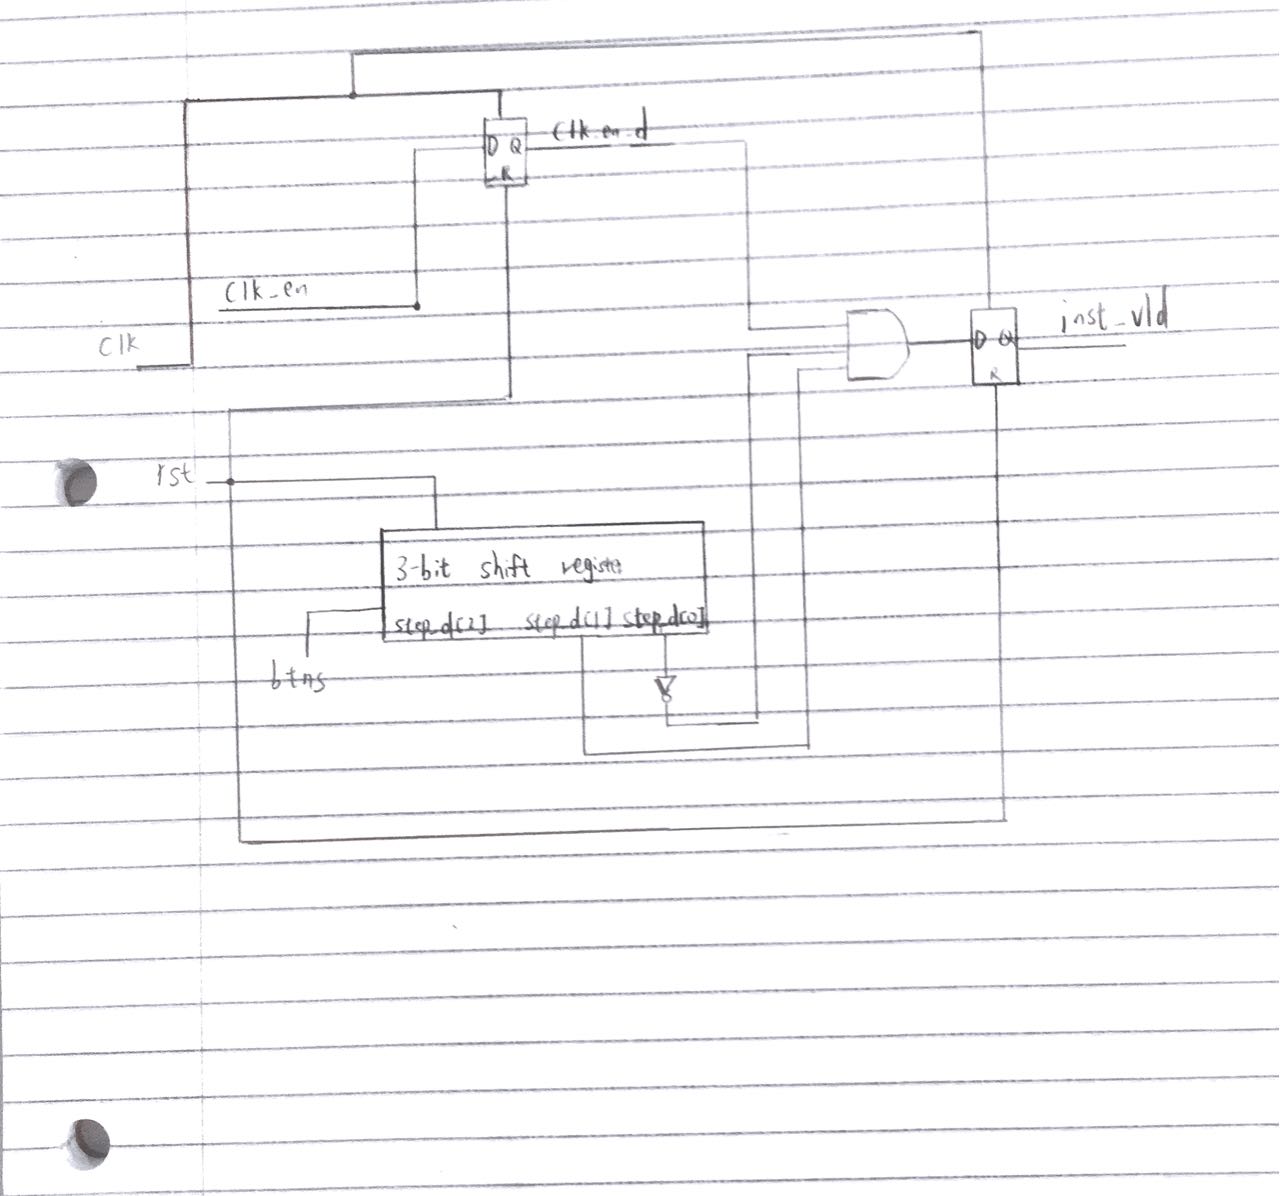 Clk_en_d
D Q
R
Clk_en
Clk
inst_vld
D Q
R
rst
3-bit shift register
step_d[2] step_d[1] step_d[0]
btns